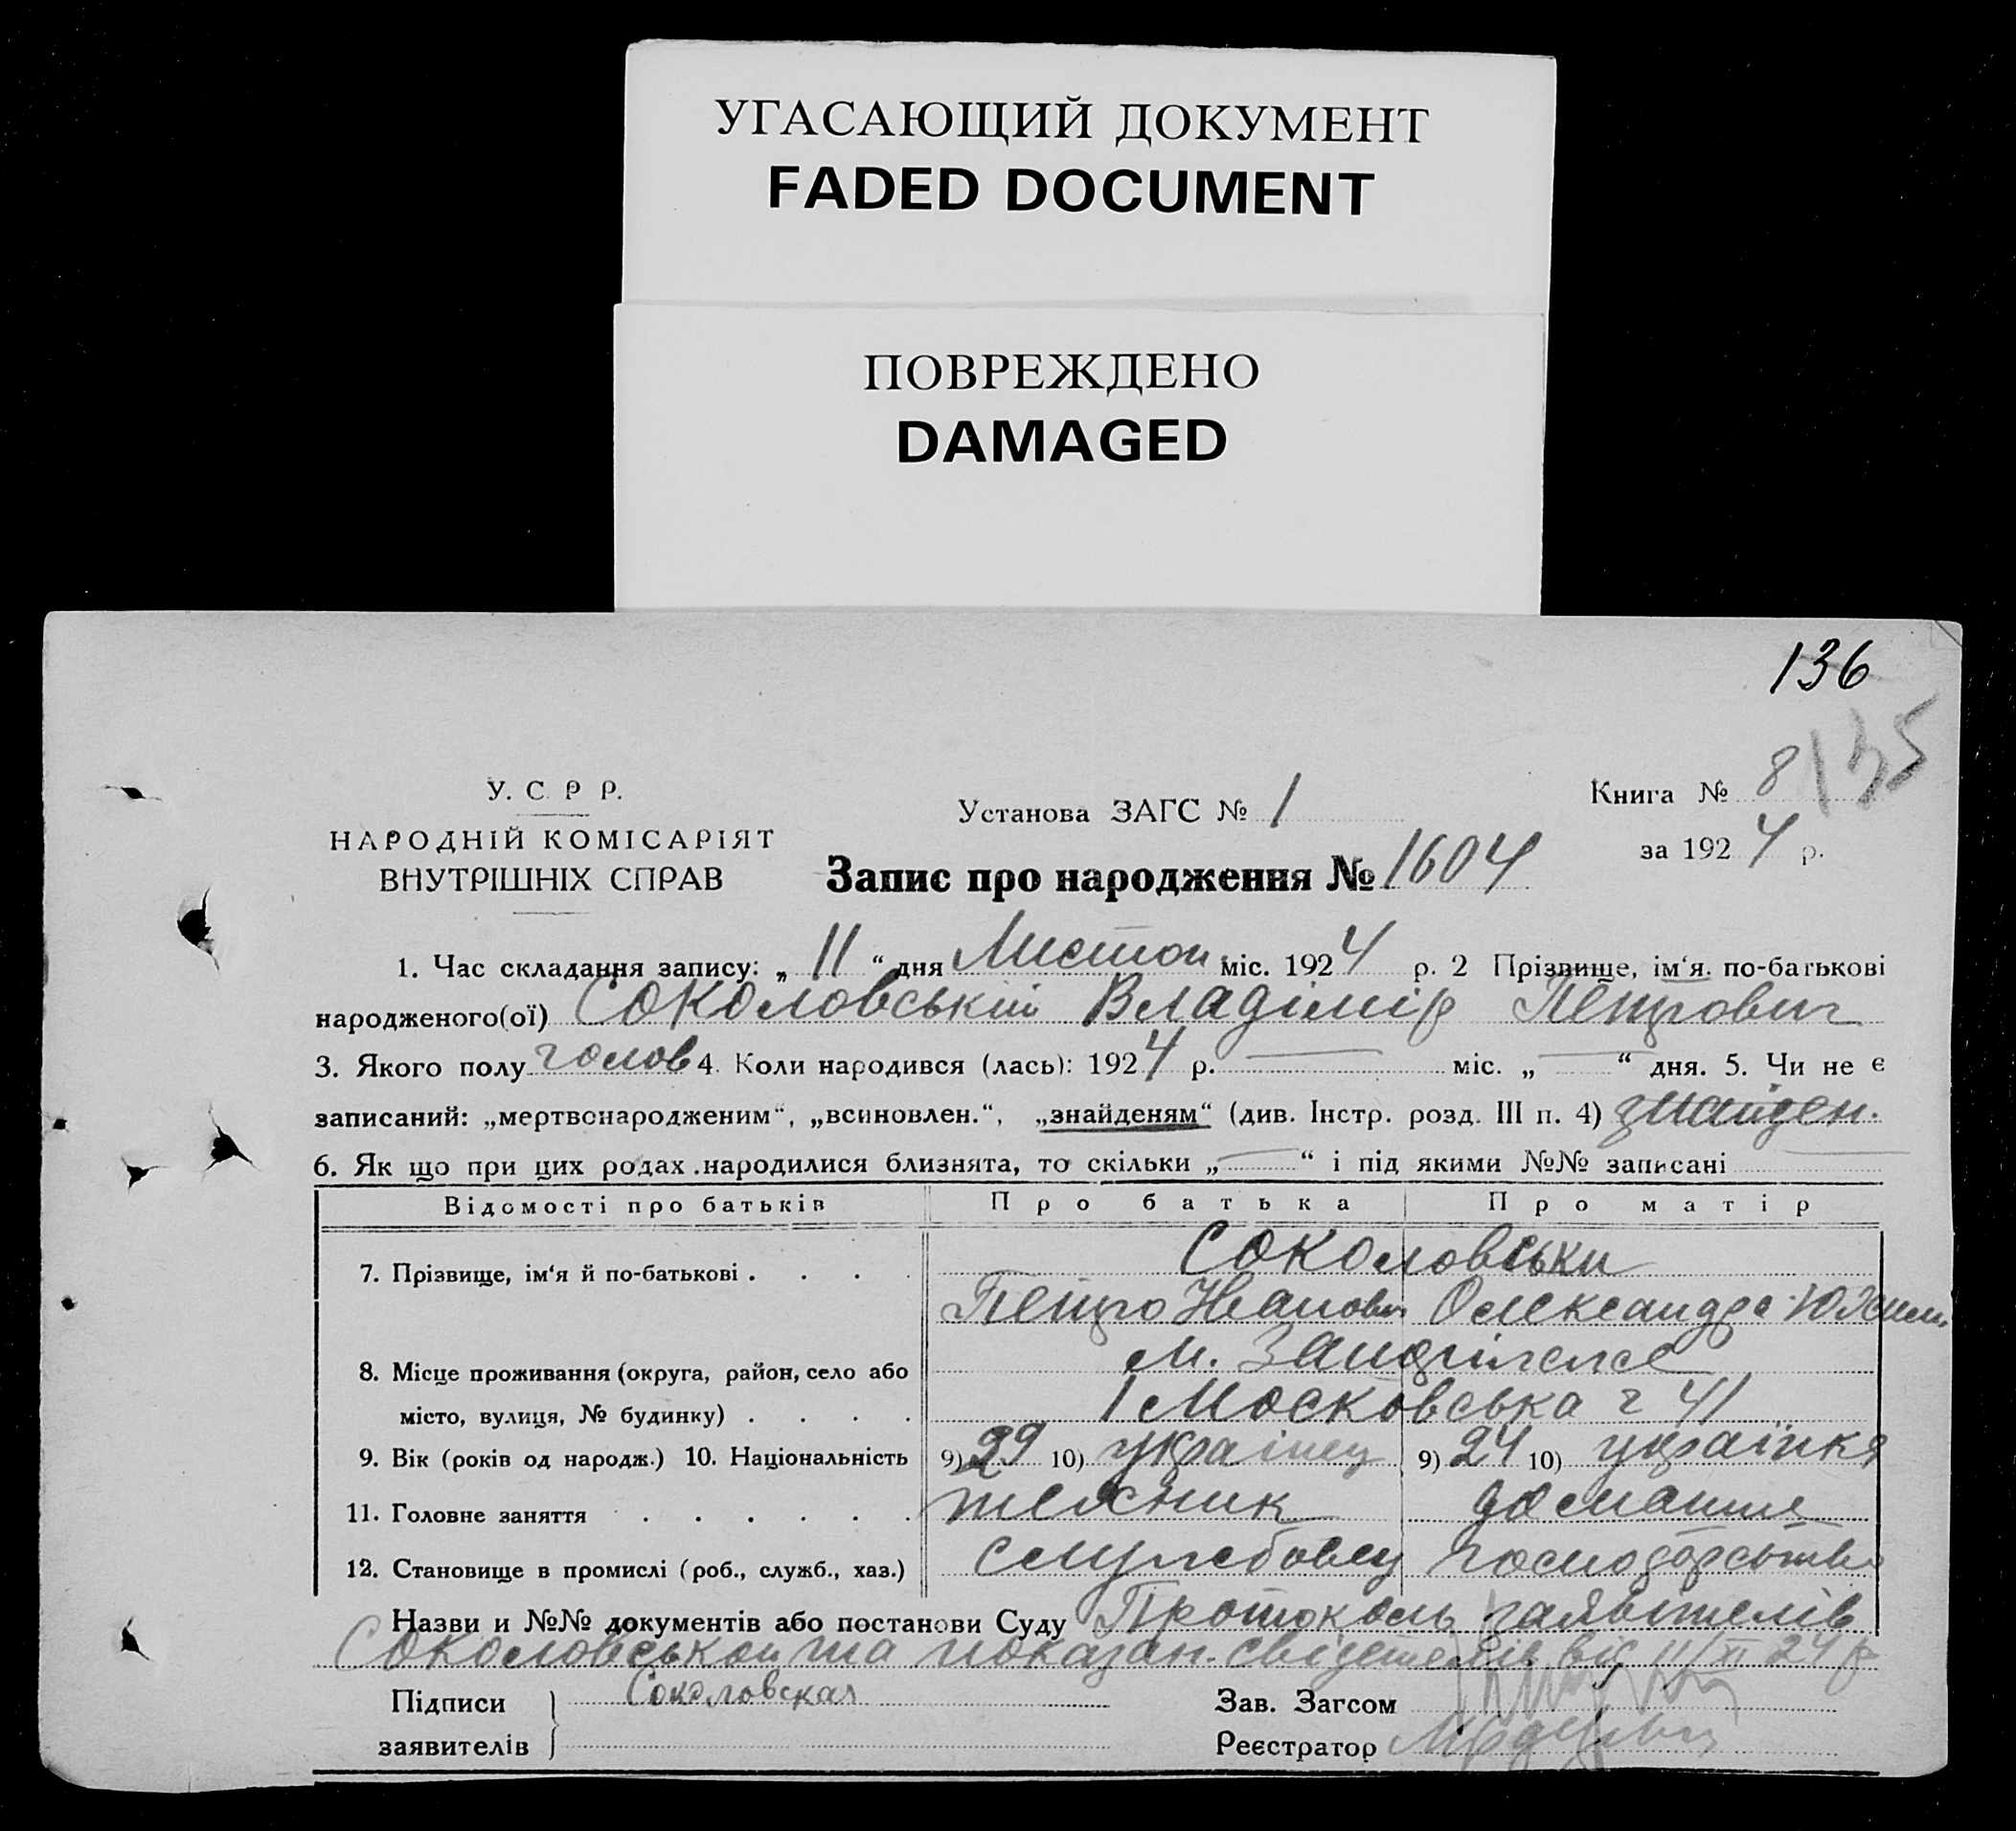 УГАСАЮЩИЙ ДОКУМЕНТ
FADED DOCUMENT
ПОВРЕЖДЕНО
DAMAGED
136
135
У. С. Р. Р.
НАРОДНІЙ КОМІСАРІЯТ
ВНУТРІШНІХ СПРАВ
Установа ЗАГС № 1
Книга № 8
за 1924 р.
Запис про народження № 1604
1. Час складання запису: „ 11 “ дня Листоп міс. 1924 р. 2 Прізвище, ім‘я. по-батькові
народженого(ої) Соколовській Владімір Петрович
3. Якого полу чолов 4. Коли народився (лась): 1924 р. — міс. „ — “ дня. 5. Чи не є
записаний: „мертвонародженим“, „всиновлен.“, „знайденям“ (див. Інстр. розд. III п. 4) знайден.
6. Як що при цих родах народилися близнята, то скільки „ — “ і під якими №№ записані
Відомості про батьків Про батька Про матір
7. Прізвище, ім‘я й по-батькові . . . . Соколовськи
Петро Иванович Олександра
8. Місце проживання (округа, район, село або м. Запоріжжє
місто, вулиця, № будинку) . . . . Московська ч 41
9. Вік (років од народж.) 10. Національність 9) 29 10) украінец 9) 24 10) українка
11. Головне заняття . . . . . . технік домашнє
12. Становище в промислі (роб., служб., хаз.) службовец господорство
Назви и №№ документів або постанови Суду Протоколь заявітелів
Соколовськой та показан. свідетелів від 11/XI 24 р
Підписи Соколовская Зав. Загсом
заявителів Реєстратор